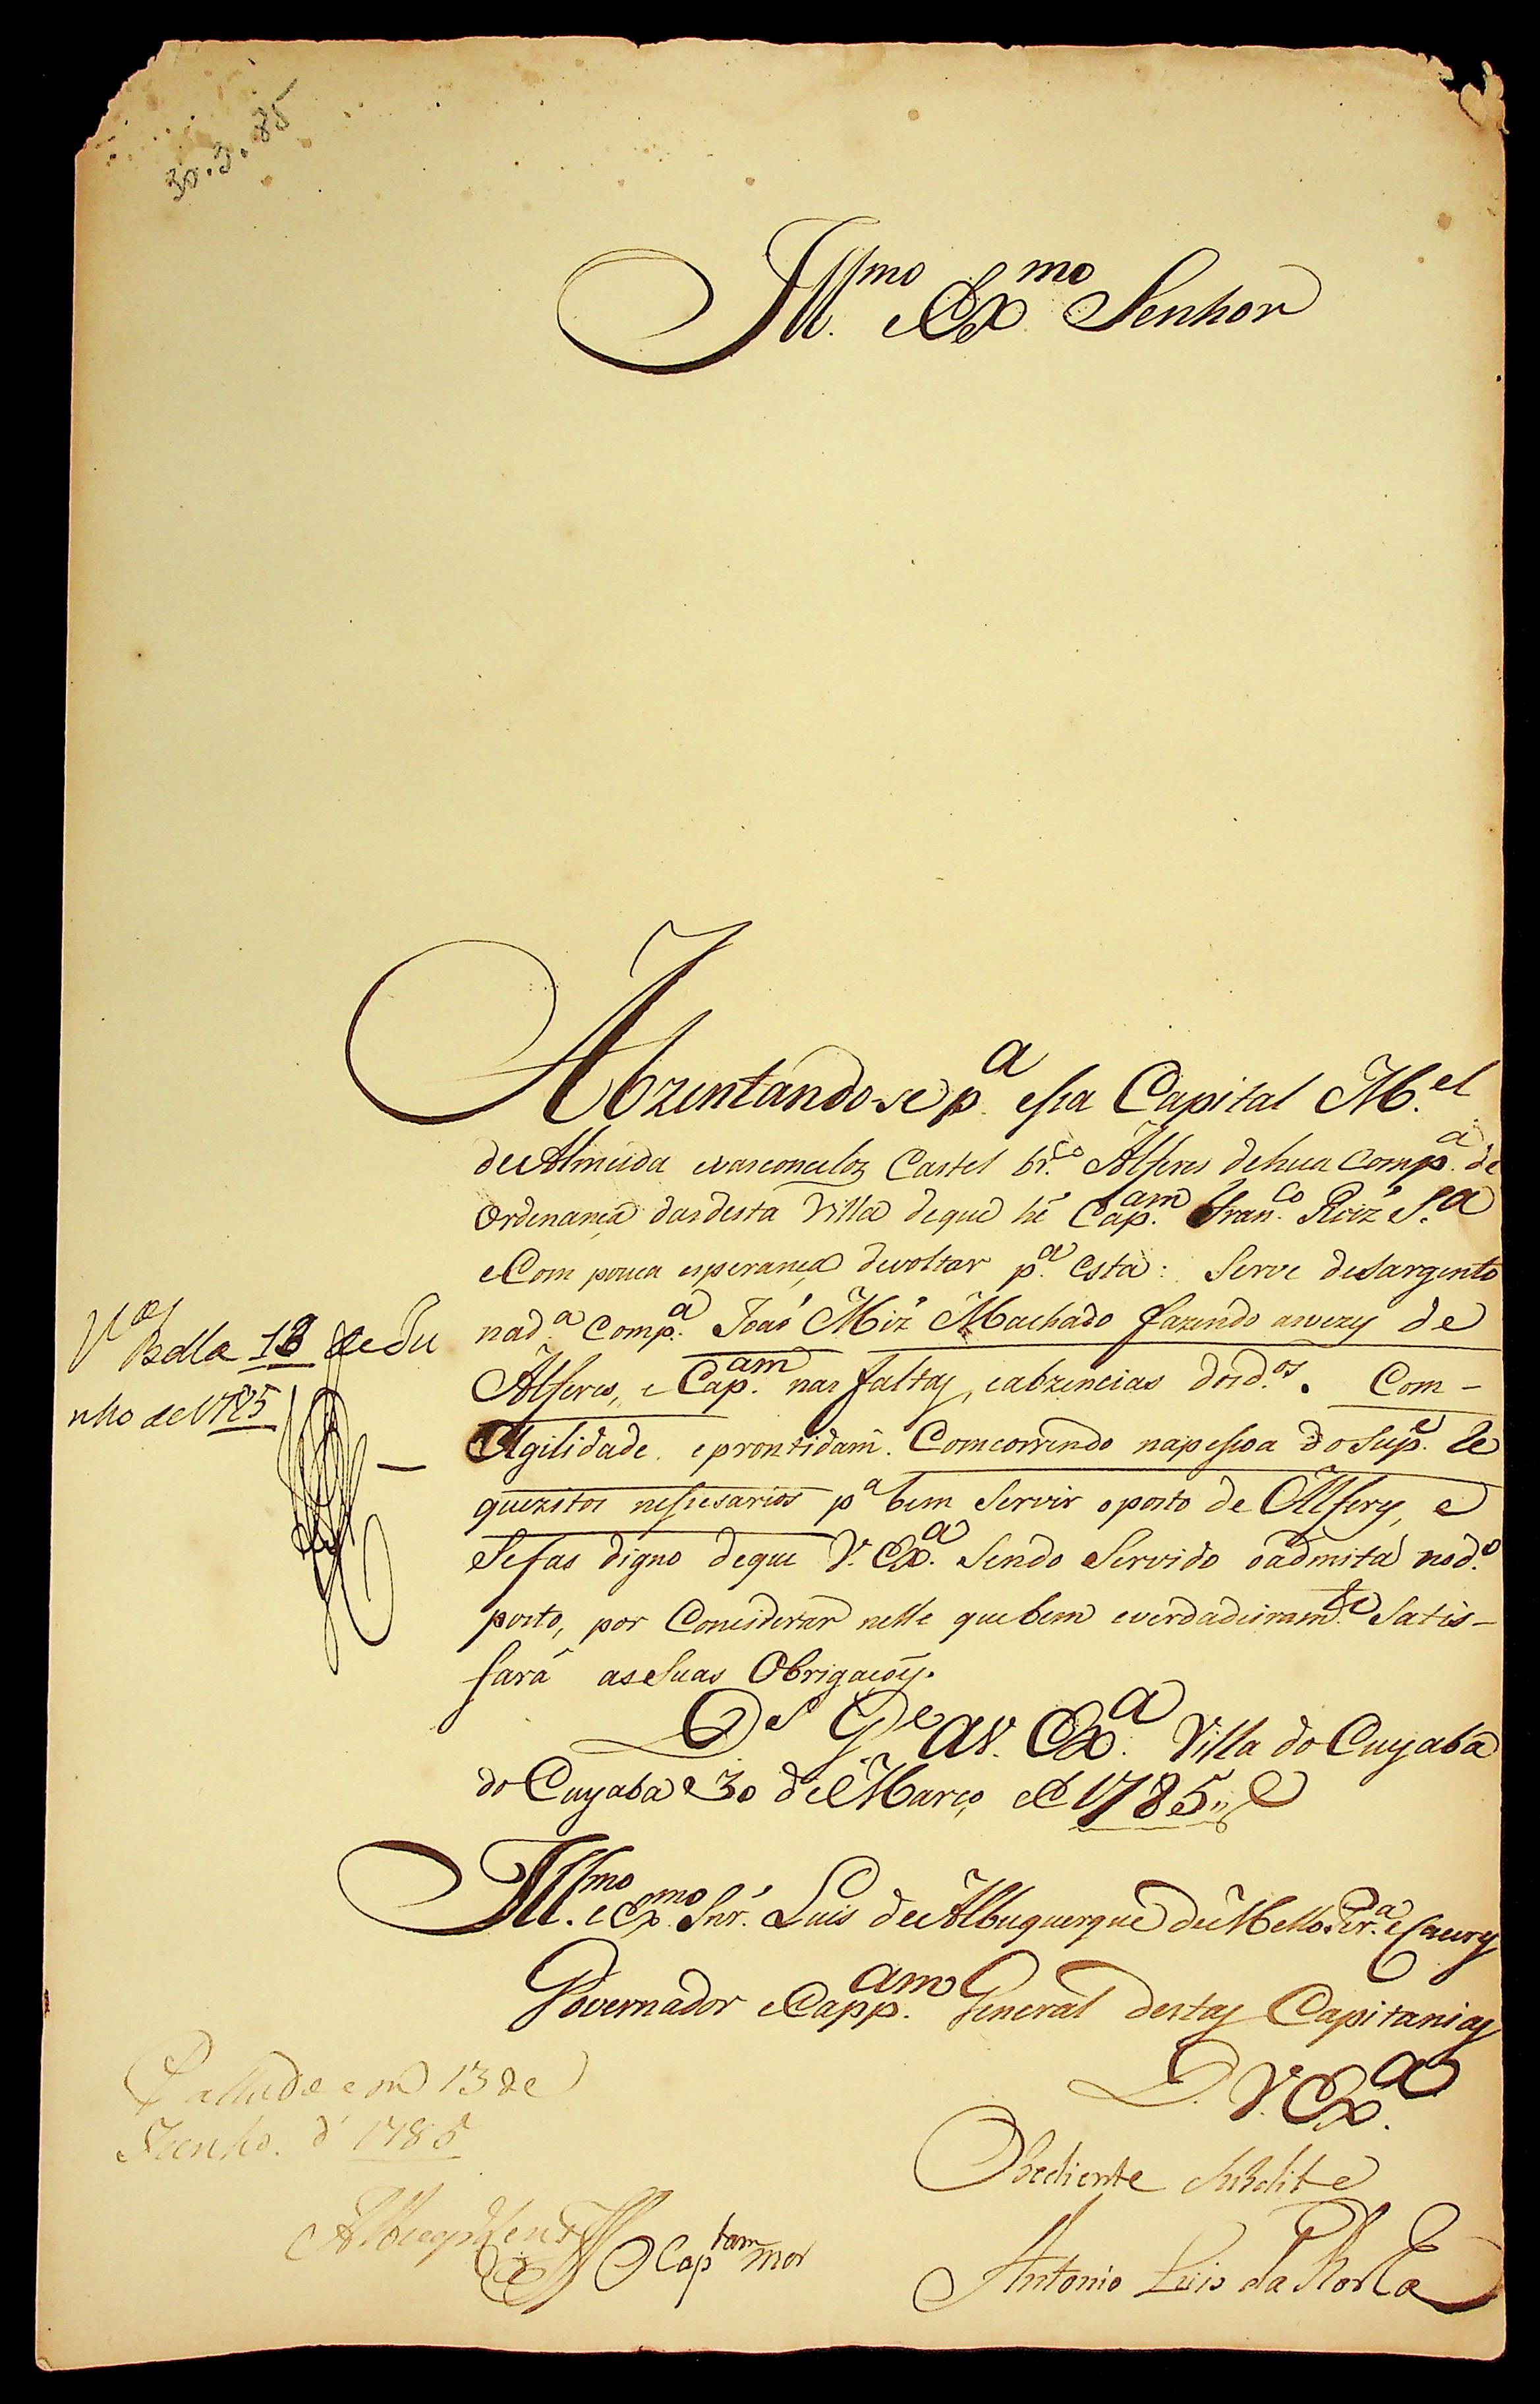 30.3.85
Ill.mo e Ex.mo Senhor
Abzentando-se p.a essa Capital M.el
de Almeida evasconcelos Castel br.co Alferes dehua Comp.a de
Ordenança dasdesta Villa deque he Cap.am Fran.co Roiz' S.a
eCom pouca esperança devoltar p.a esta: Serve deSargento
nad.a Comp.a Joaõ Miz' Machado fazendo asvezes de
Alferes, e Cap.am nas faltas, eabzencias dosd.os. Com-
Agilidade. eprontidam. Comcorrendo napessoa do Sup.e Re
quezitos nessesarios p.a bem Servir oposto de Alferes, e
Sefas digno deque V. Ex.a Sendo Servido oadmita nod.o
posto, por Conciderar nelle quebem everdadeiram.te Satis-
fará asSuas Obrigações.
D.s G.e a V. Ex.a Villa do Cuyabá
do Cuyabá 30 de Março de 1785
Ill.mo e Ex.mo Snr.' Luis de Albuquerque de Mello Per.a e Caceres
Governador eCapp.am General destas Capitanias
D. V. Ex.a
Obediente Subdito
Antonio Luis da Rocha
Cap.tam mor
V.a
Bella 18 de Ju
nho de 1785
em 13 de
Junho. d' 1785